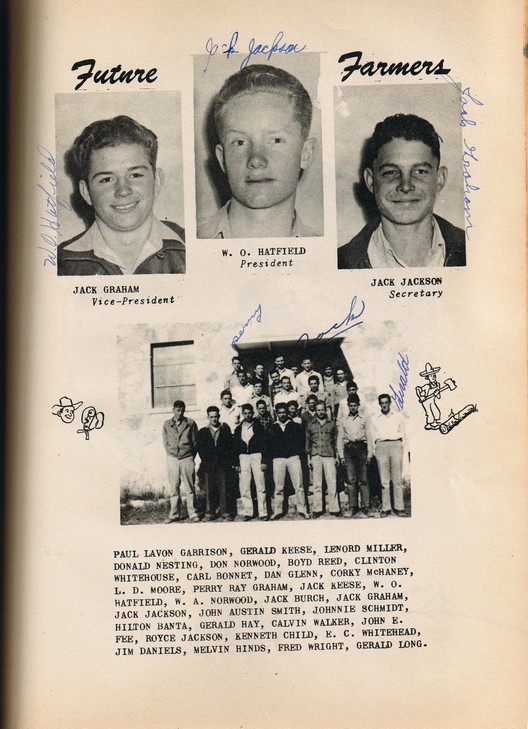 Jack Jackson
Future Farmers
W.O. Hatfield
Jack Graham
W. O. HATFIELD
President
JACK GRAHAM
Vice-President
JACK JACKSON
Secretary
perry
Jack
Gerald
PAUL LAVON GARRISON, GERALD KEESE, LENORD MILLER,
DONALD NESTING, DON NORWOOD, BOYD REED, CLINTON
WHITEHOUSE, CARL BONNET, DAN GLENN, CORKY McHANEY,
L. D. MOORE, PERRY RAY GRAHAM, JACK KEESE, W. O.
HATFIELD, W. A. NORWOOD, JACK BURCH, JACK GRAHAM,
JACK JACKSON, JOHN AUSTIN SMITH, JOHNNIE SCHMIDT,
HILTON BANTA, GERALD HAY, CALVIN WALKER, JOHN E.
FEE, ROYCE JACKSON, KENNETH CHILD, E. C. WHITEHEAD,
JIM DANIELS, MELVIN HINDS, FRED WRIGHT, GERALD LONG.